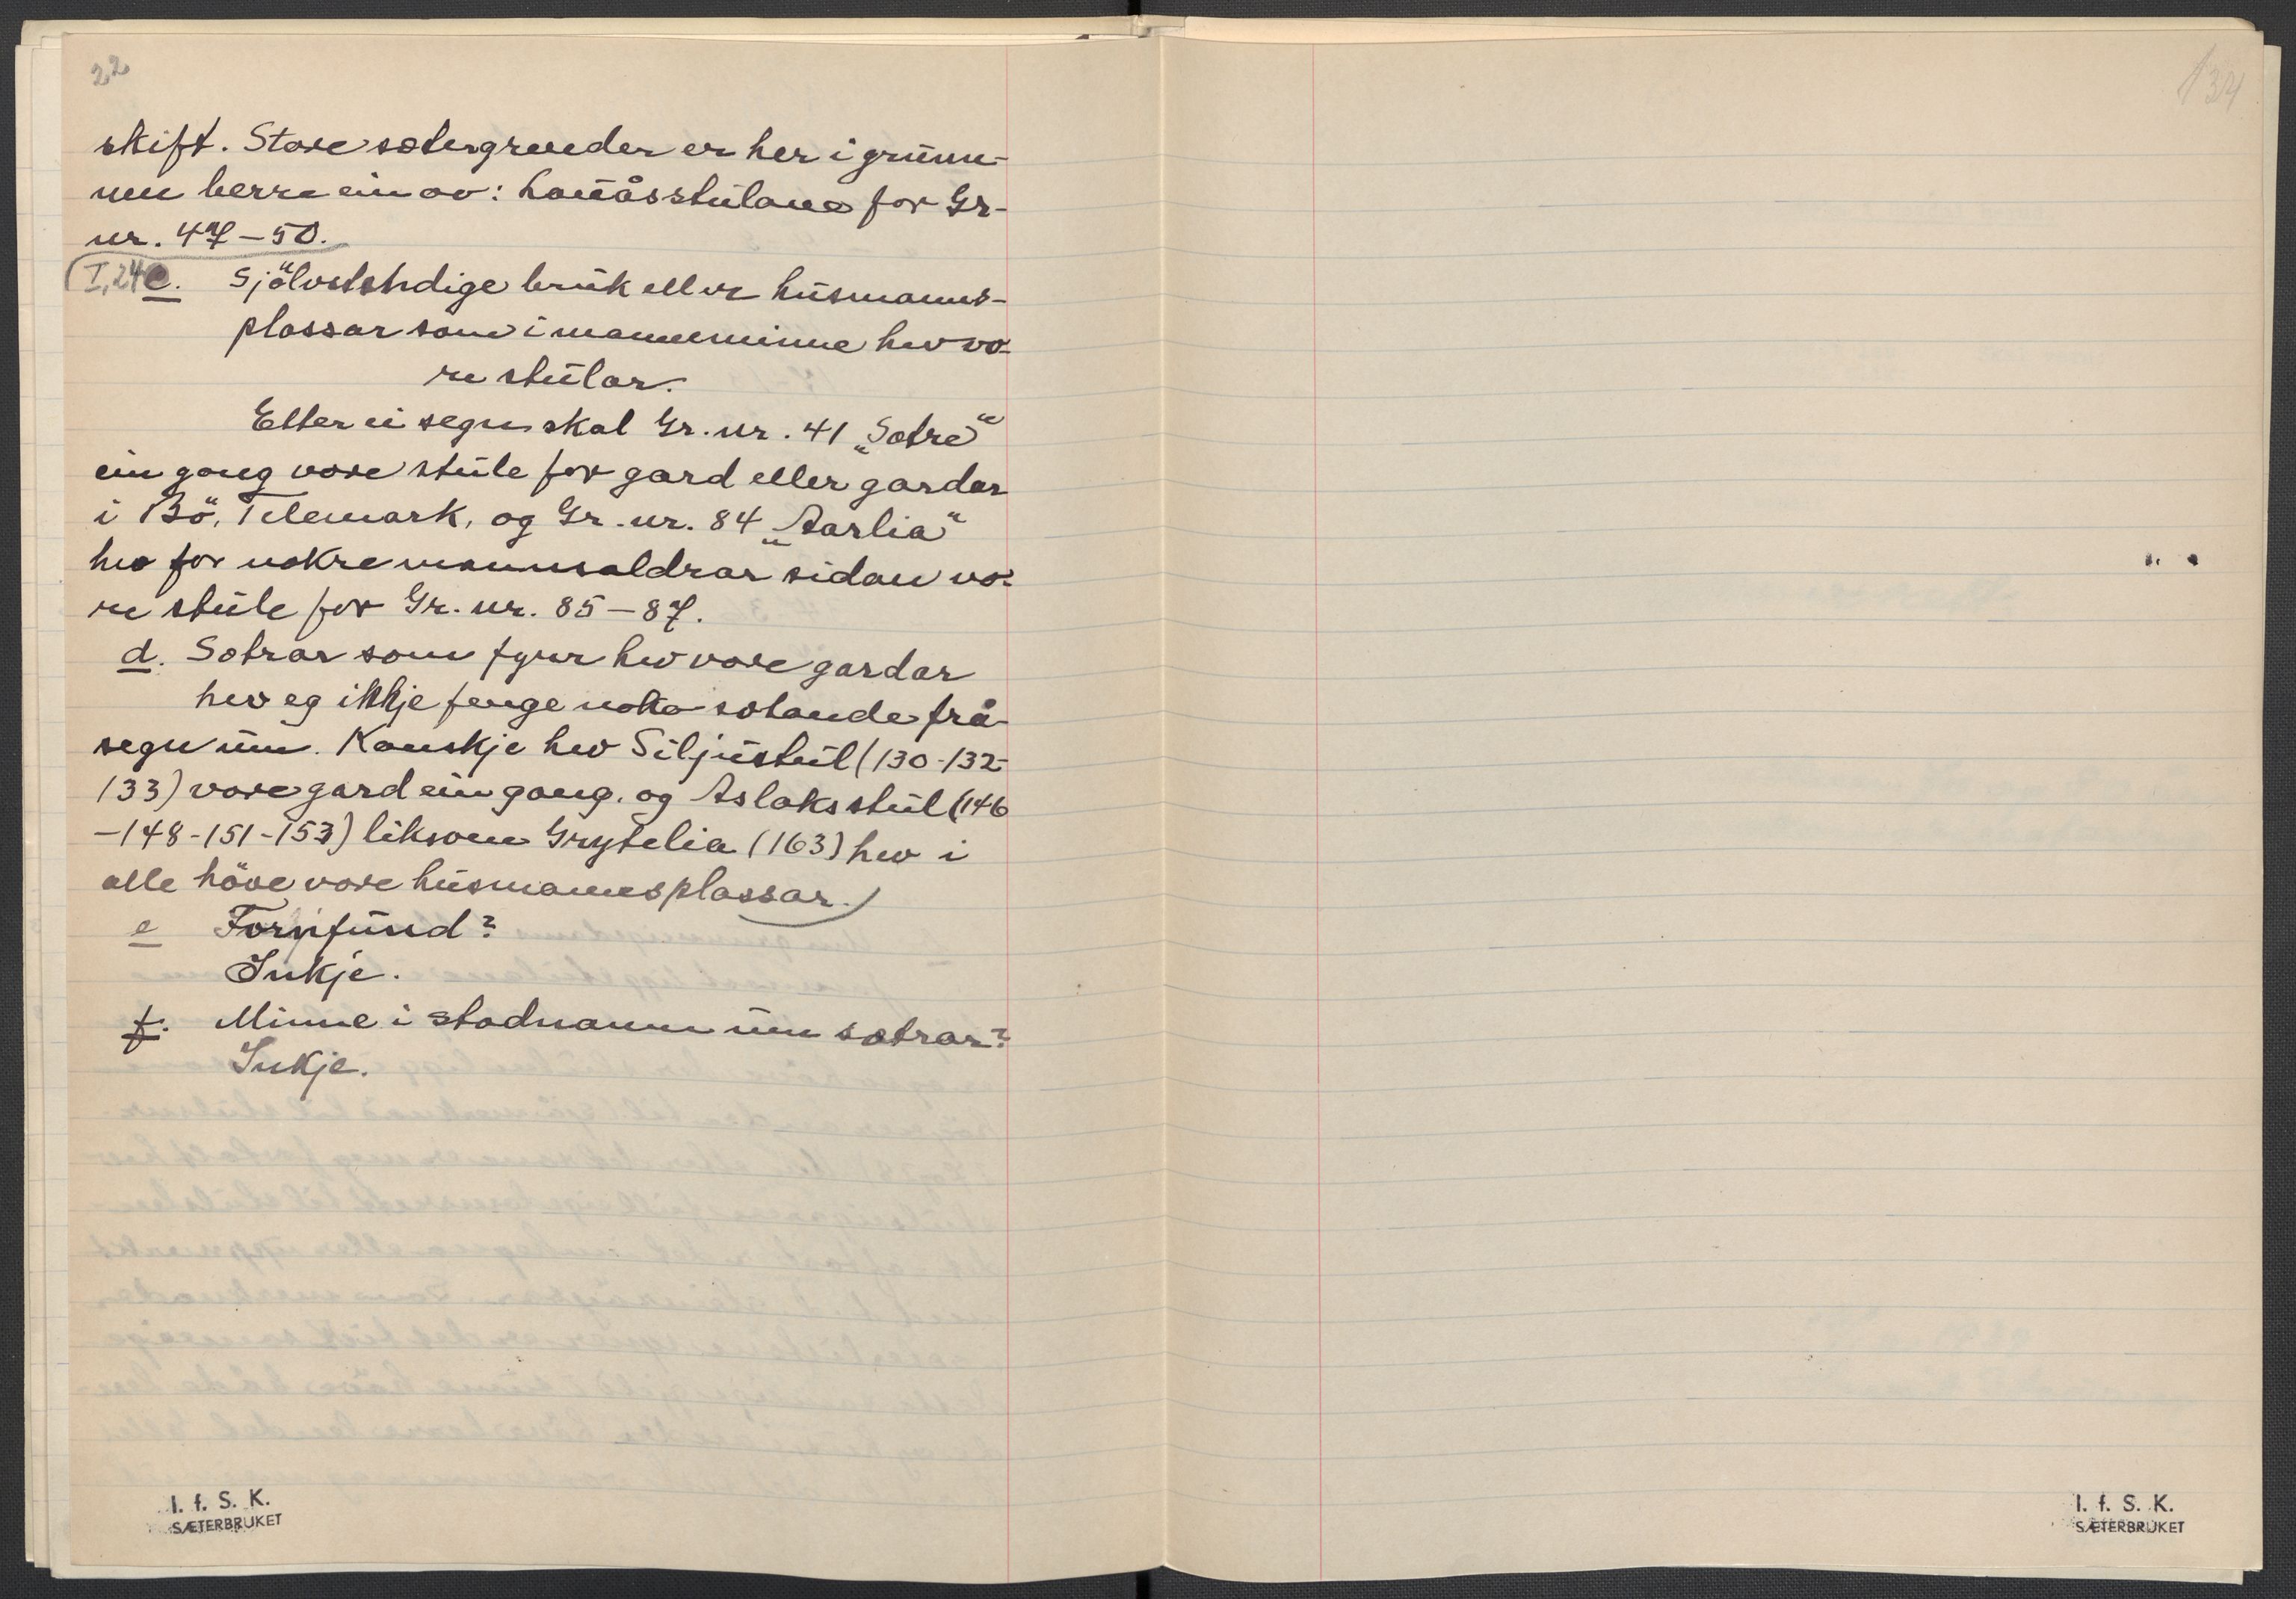 22
skift. Store sætergrender er her i grunn-
nen berre ein av: Lonåsstulane for Gr-
nr. 47-50.
I, 24 c. Sjölvstendige bruk eller husmanns-
plassar som i manneminne hev vo-
re stular.
Etter ei segn skal Gr. nr. 41 „Sotre“
ein gong vore stule for gard eller gardar
i Bö, Telemark, og Gr. nr. 84 „Aarlia“
hev for nokre mannsaldrar sidan vo-
re stule for Gr. nr. 85-87.
d. Sætrar som fyrr hev vore gardar
hev eg ikkje fenge noko sotande frå-
segn um. Kanskje hev Siljustul (130-132-
133) vore gard ein gong, og Aslaksstul (146
-148-151-153) liksom Grytelia (163) hev i
alle höve vore husmannsplassar.
e Fornfund?
Inkje.
f. Minne i stadnamn um sætrar?
Inkje.
I. f. S. K.
SÆTERBRUKET
134
I. f. S. K.
SÆTERBRUKET